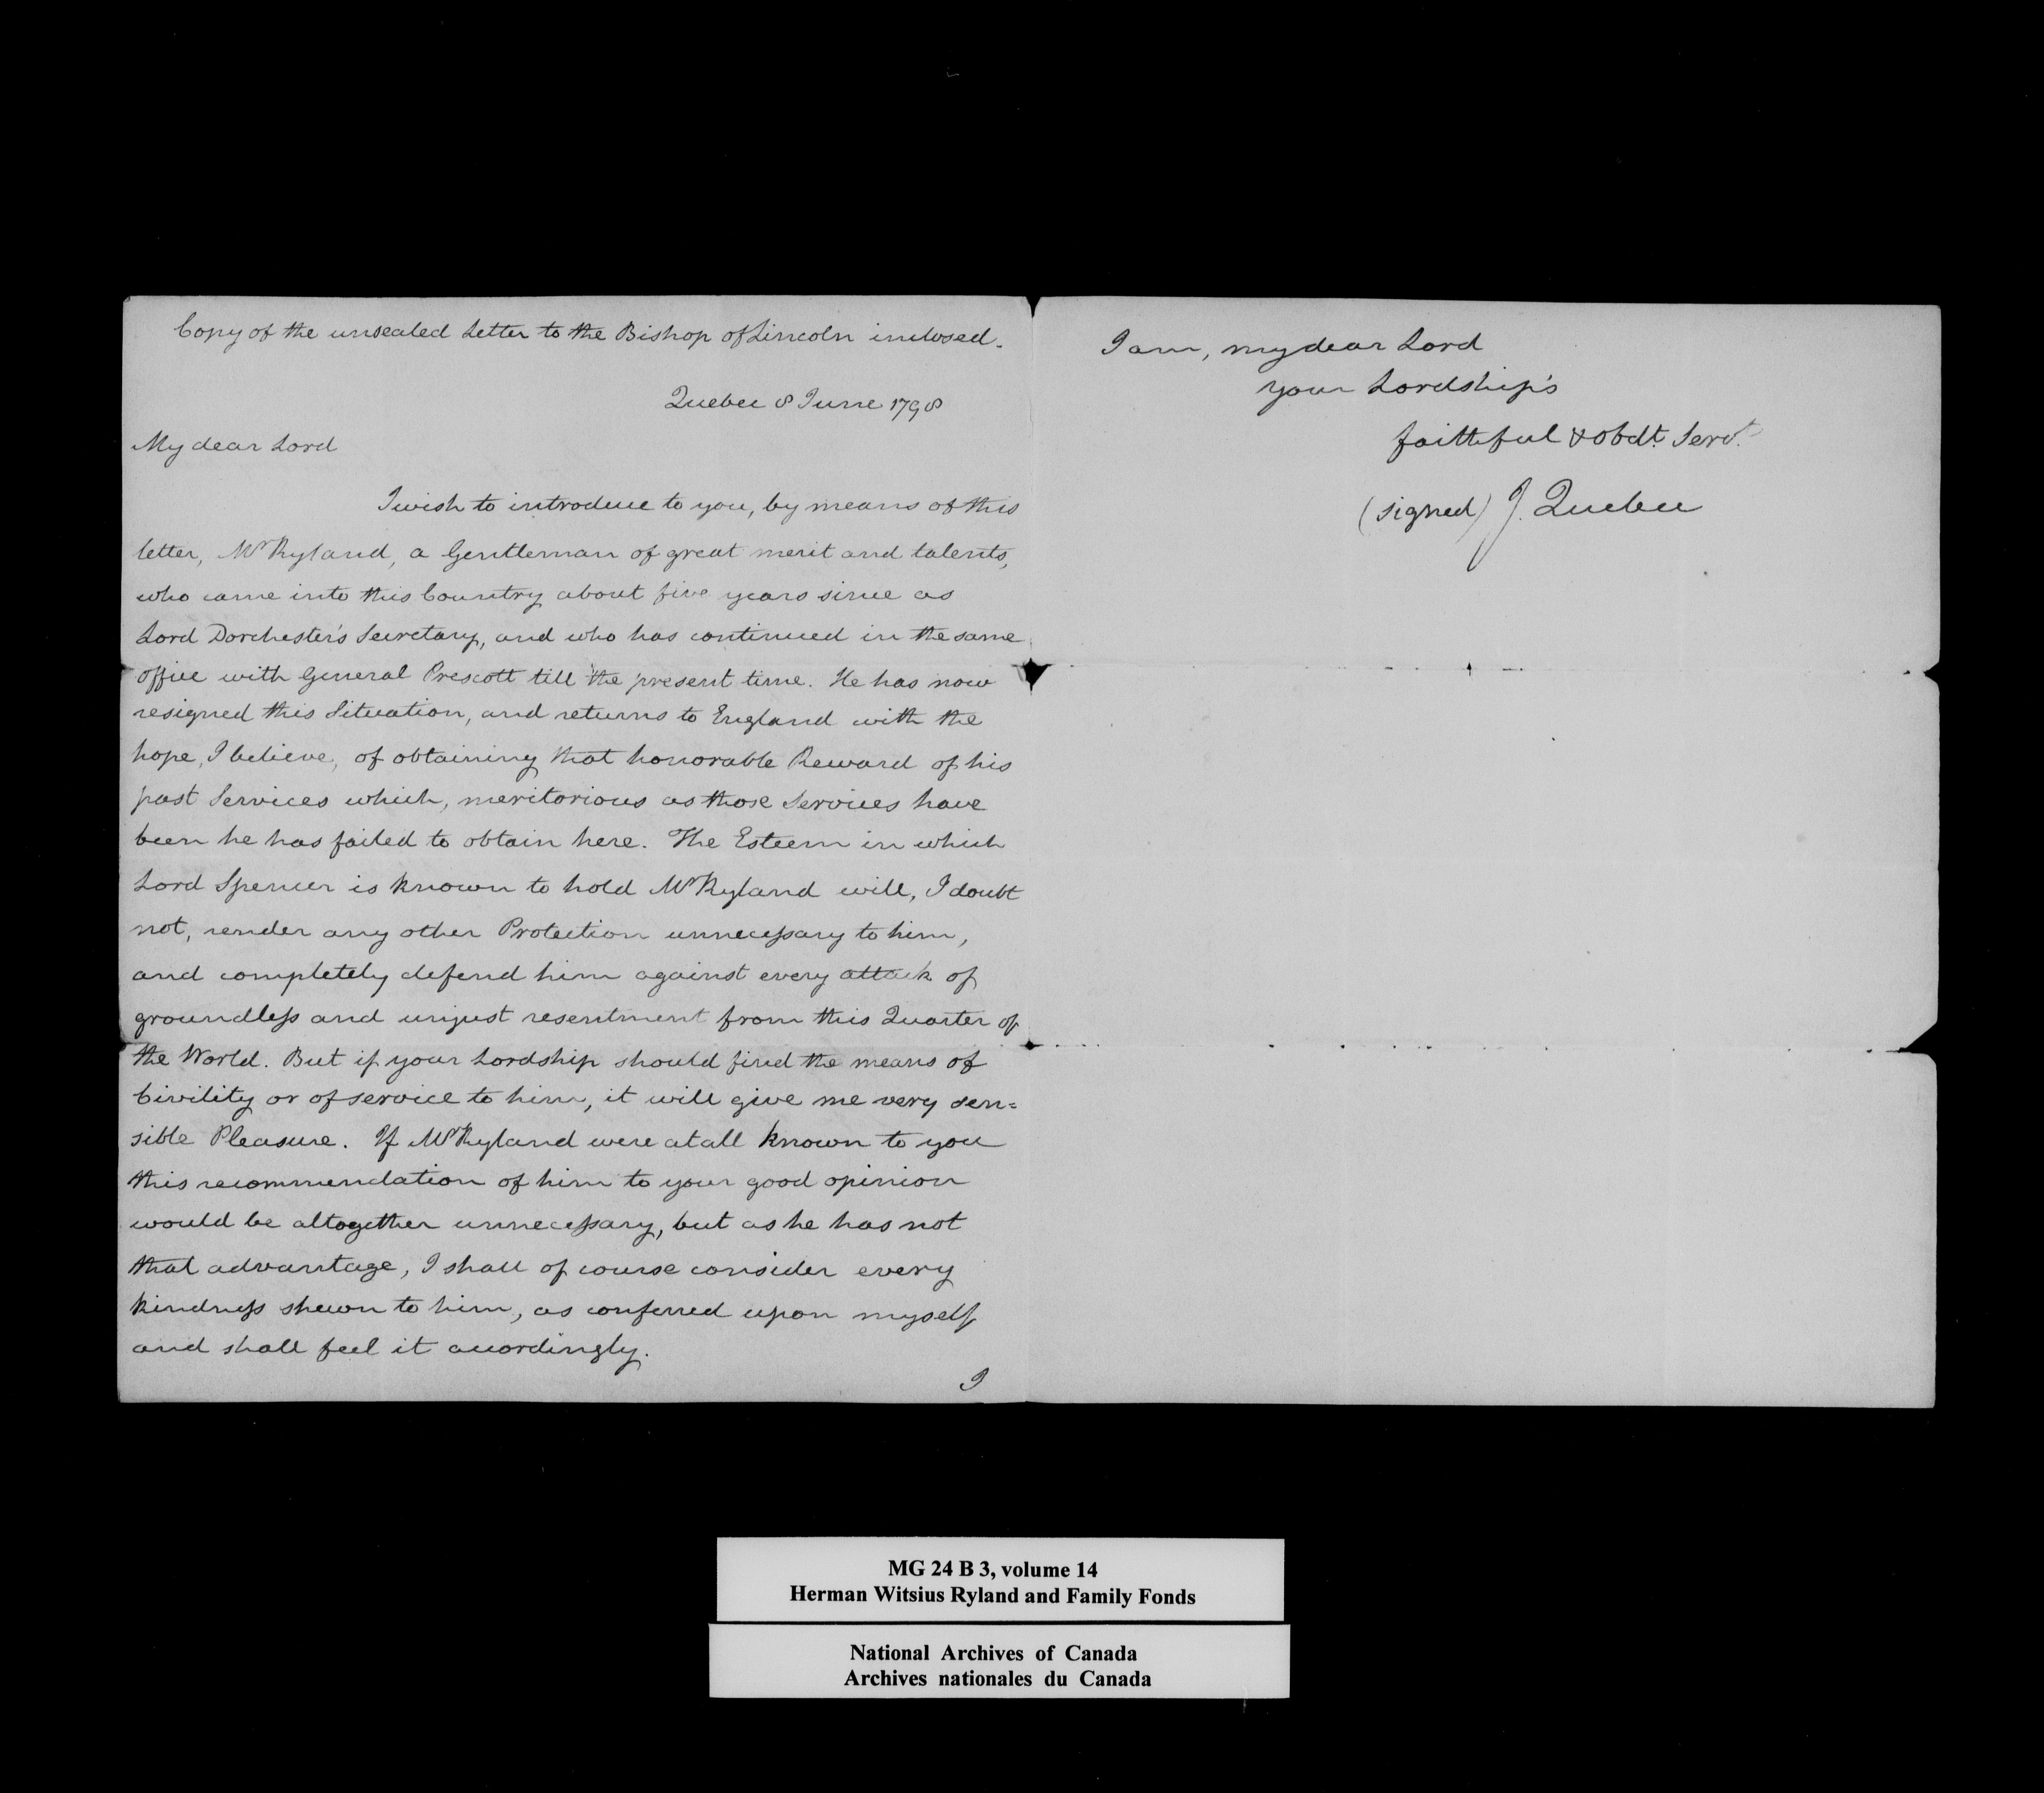 Copy of the unsealed Letter to the Bishop of Lincoln inclosed.
Quebec 8 June 1798
My dear Lord
I wish to introduce to you, by means of this
letter, Mr Ryland, a Gentleman of great merit and talents,
who came into this Country about five years since as
Lord Dorchester's Secretary, and who has continued in the same
office with General Prescott till the present time. He has now
resigned this Situation, and returns to England with the
hope, I believe, of obtaining that honorable Reward of his
past Services which, meritorious as those Services have
been he has failed to obtain here. The Esteem in which
Lord Spencer is known to hold Mr Ryland will, I doubt
not, render any other Protection unnecessary to him,
and completely defend him against every attack of
groundless and unjust resentment from this Quarter of
the World. But if your Lordship should find the means of
Civility or of service to him, it will give me very sen=
sible Pleasure. If Mr Ryland were at all known to you
this recommendation of him to your good opinion
would be altogether unnecessary, but as he has not
that advantage, I shall of course consider every
kindness shewn to him, as conferred upon myself
and shall feel it accordingly.
I
I am, my dear Lord
your Lordship's
faithful & obdt. Servt.
(signed) J. Quebec
MG 24 B 3, volume 14
Herman Witsius Ryland and Family Fonds
National Archives of Canada
Archives nationales du Canada